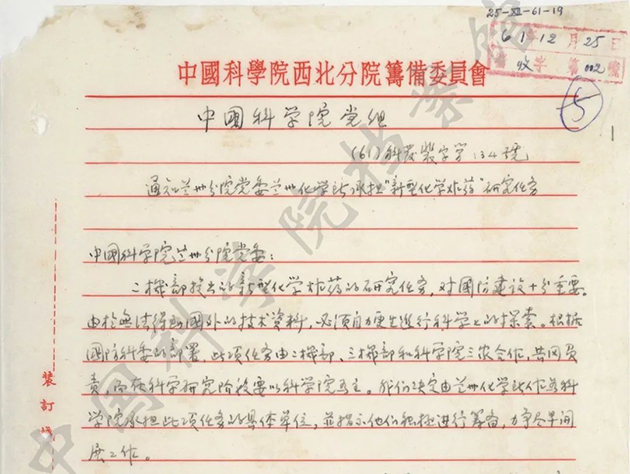 25-XII-61-19
61年12月25日
收字第002號
5
中國科學院西北分院籌備委員會
中國科学院党组
(61)科发党字第134號
通知兰州分院党委兰州化学所承担"新型化学炸药"研究任务
中国科学院兰州分院党委:
二機部提出的新型化学炸药的研究任务,对国防建设十分重要。
由於無法得到國外的技术资料,必须自力更生進行科学上的探索。根据
國防科委的部署,此項任务由二機部、三機部和科学院三家合作,共同负
责,而在科学研究阶段要以科学院为主。我们决定由兰州化学所作为科
学院承担此項任务的具体单位,並指示他们积极进行筹备,力争尽早间
展工作。
裝訂线
中国科学院档案馆